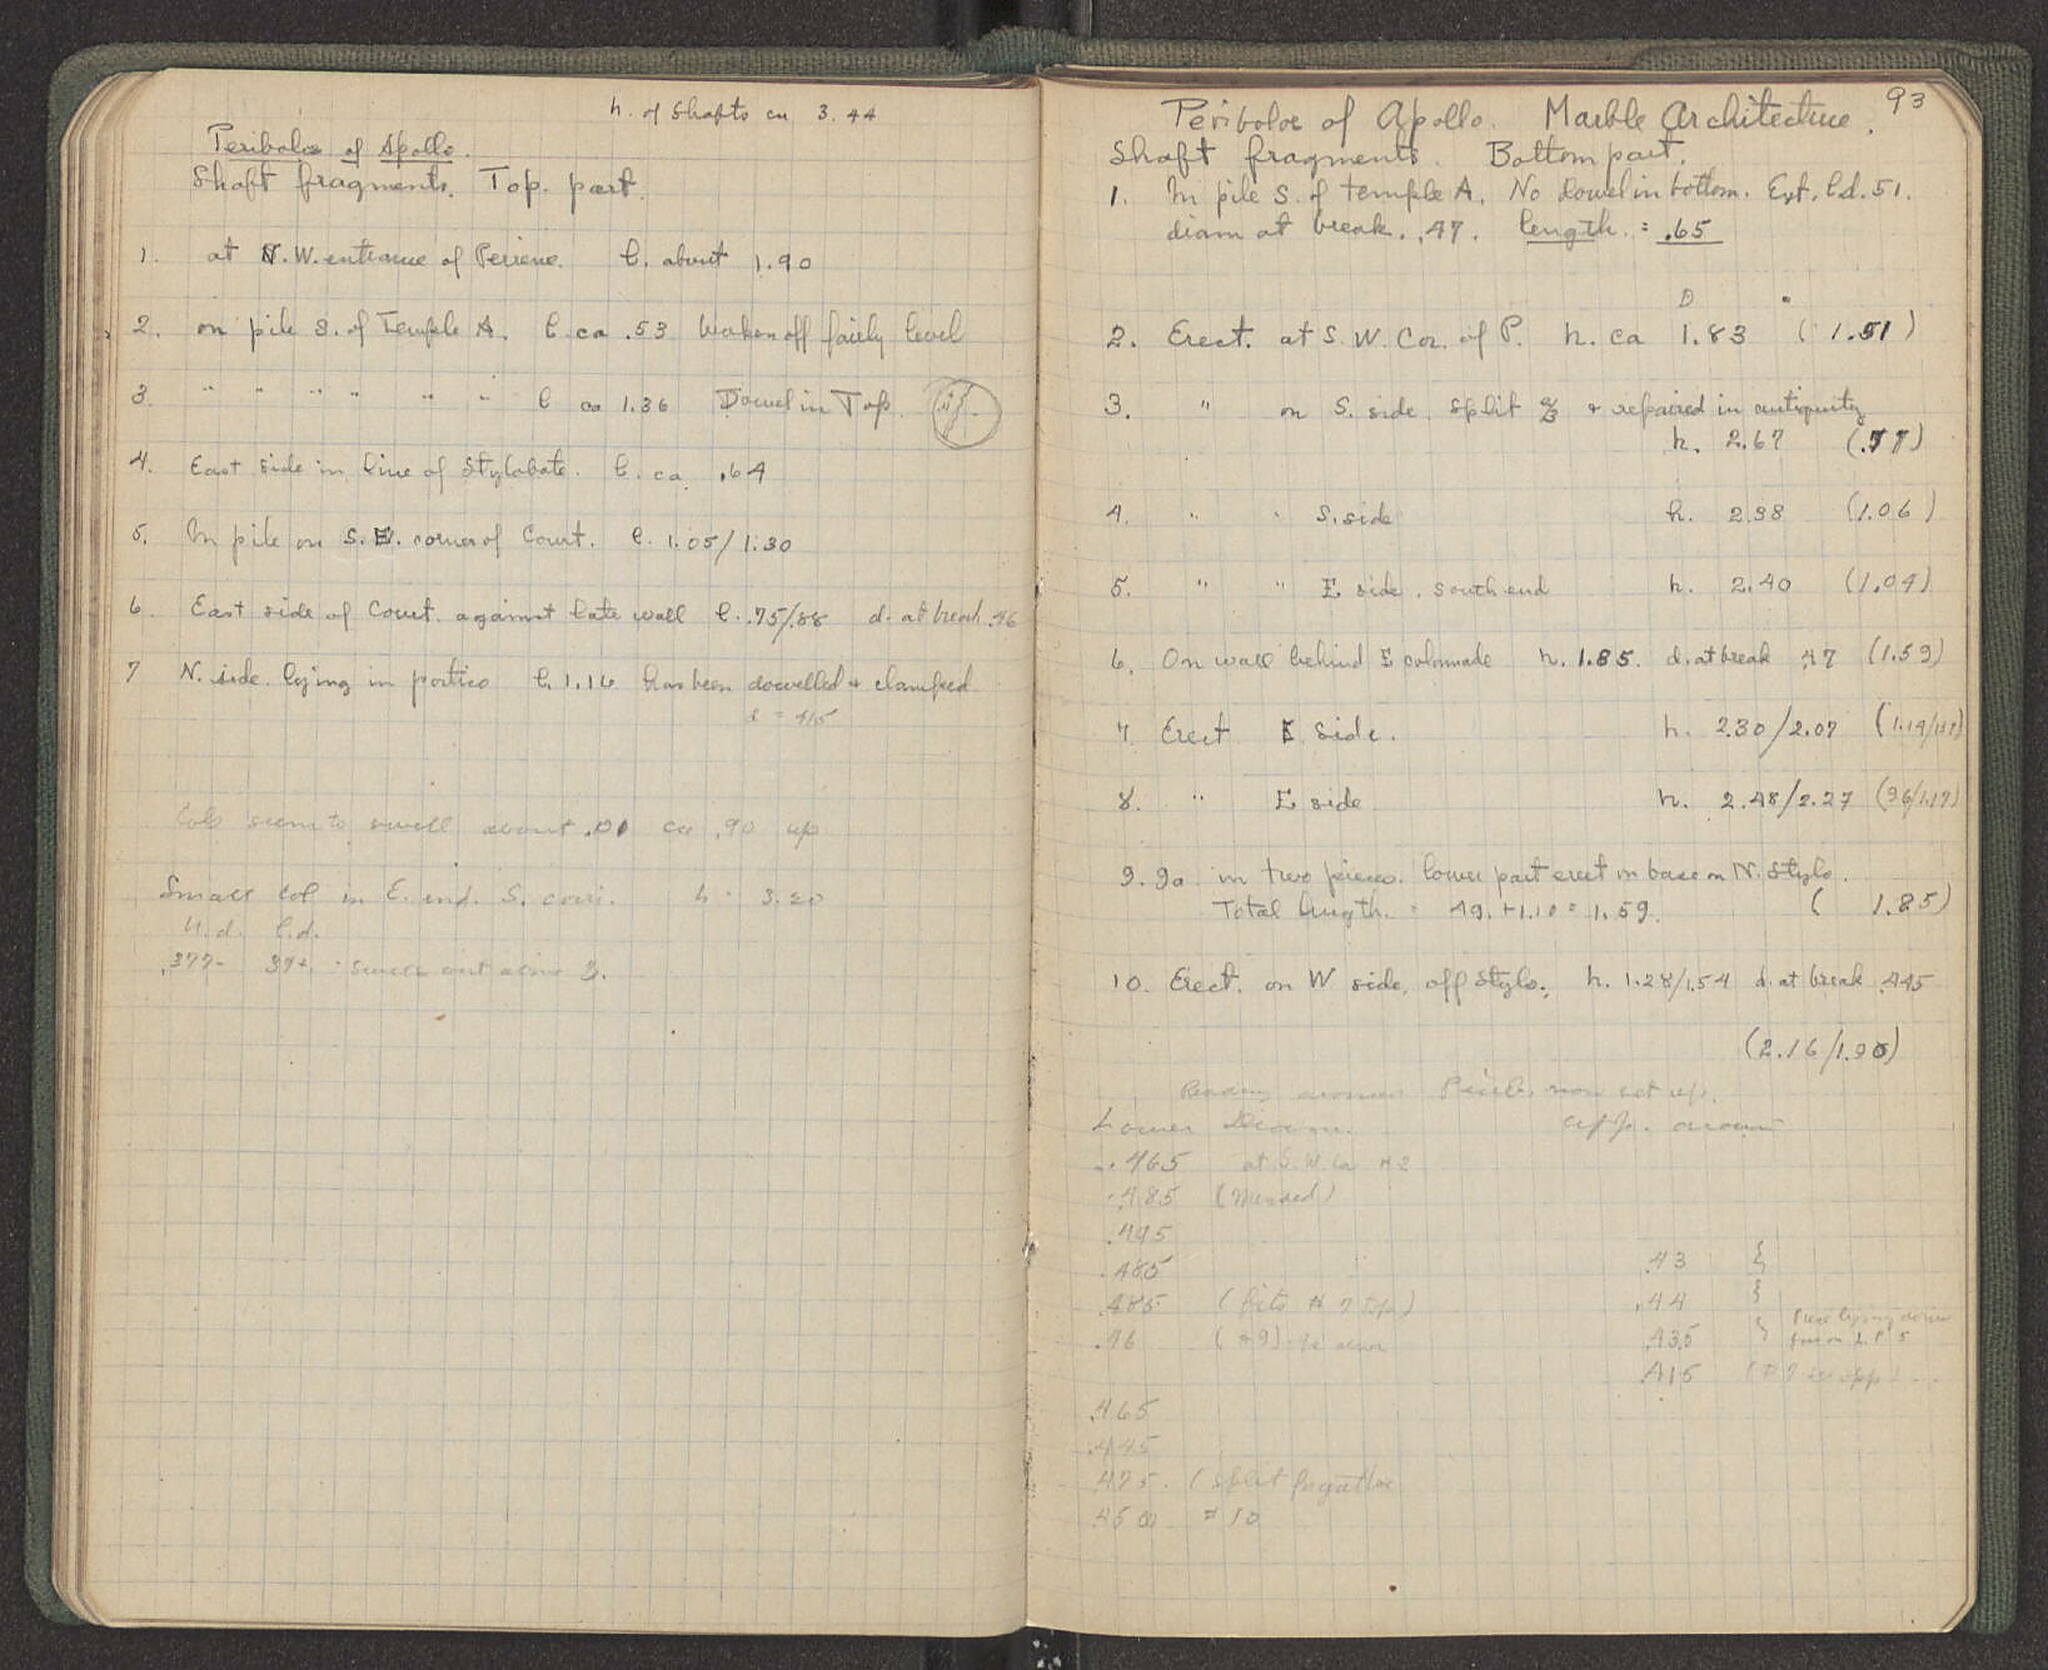 h. of Shafts ca 3.44
Peribolos of Apollo.
Shaft fragments. Top. part.
1. at N.W. entrance of Peirene. l. about 1.90
2. on pile S. of Temple A. l. ca .53 broken off fairly level
3. " " " " " " l ca 1.36 Dowel in Top.
4. East side in line of Stylobate. l. ca. .64
5. In pile on S.E. corner of Court. l. 1.05/1.30
6. East side of Court. against late wall l. .75/.88 d. at break .46
7 N. side. lying in portico l. 1.16 has been dowelled & clamped
Cols seem to swell about .01 ca .90 up
Small Col in E. end. S. corr. h. 3.20
u.d. l.d.
.377-
93
Peribolos of Apollo. Marble Architecture.
Shaft fragments. Bottom part.
1. In pile S. of temple A. No dowel in bottom. Ext. l.d. 51.
diam at break. .47. length. = .65
2. Erect. at S.W. Cor. of P. h. ca 1.83 (1.51)
3. " on S. side. Split & repaired in antiquity
h. 2.67 (.77)
4. " " S. side h. 2.38 (1.06)
5. " " E side. South end h. 2.40 (1.04)
6. On wall behind E colonnade h. 1.85. d. at break .47 (1.59)
7. Erect E side. h. 2.30/2.07
8. " E side h. 2.48/2.27 (96/1.17)
9. 9a in two pieces. lower part erect on base on N. Stylo.
Total length. = 49. + 1.10 = 1.59. ( 1.85)
10. Erect. on W side, off Stylo. h. 1.28/1.54 d. at break .445
(2.16/1.90)
now set up.
Lower Diam.
.465 at S.W. Co #2
.485 (Mended)
.495
.485 .43
.485 (fits # 7 top) .44
.46 .435
.415
.465
.445
.475. (Split together
.45 # 10